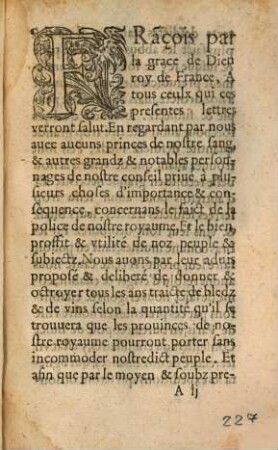 FRãcois par
la grace de Dieu
roy de France, A
tous ceulx qui ces
presentes lettres
verront salut. En regardant par nous
auec aucuns princes de nostre sang,
& autres grandz & notables person-
nages de nostre conseil priué à plu-
sieurs choses d'importance & con-
sequence, concernans le faict de la
police de nostre royaume, Et le bien,
proffit & vtilité de noz peuple &
subiectz. Nous auons par leur aduis
proposé & deliberé de donner &
octroyer tous les ans traicte de bledz
& de vins selon la quantité qu'il se
trouuera que les prouinces de no-
stre royaume pourront porter sans
incommoder nostredict peuple. Et
afin que par le moyen & soubz pre-
A ij
227